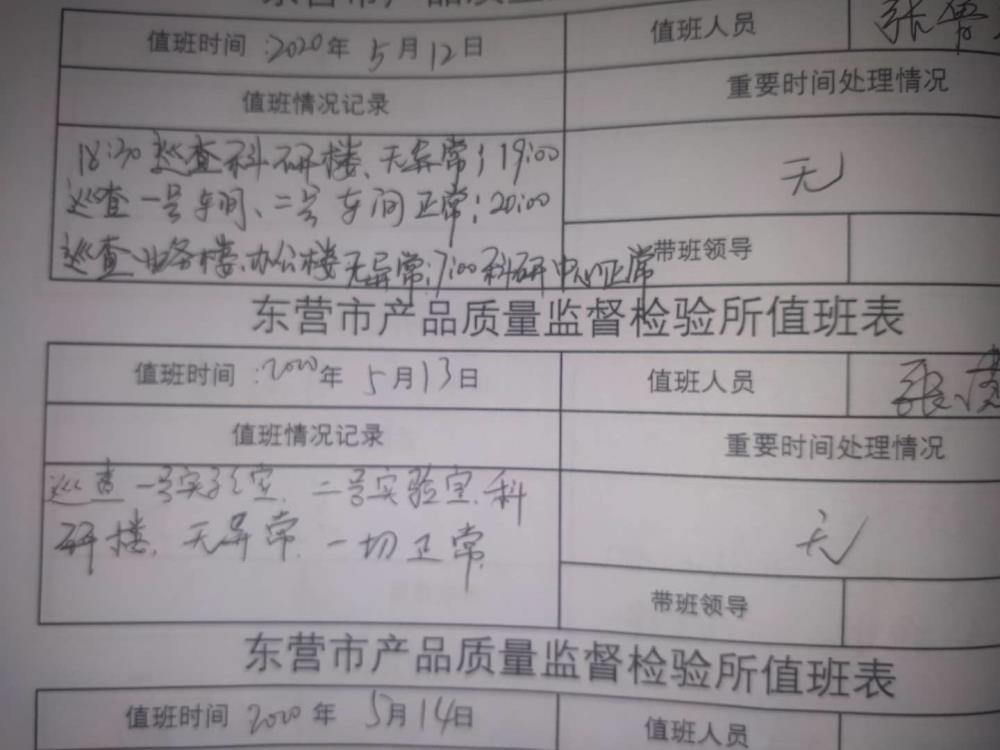 东营市产品质量监
值班时间:2020年 5月12日 值班人员 张
值班情况记录 重要时间处理情况
18:30巡查科研楼、无异常;19:00
巡查一号车间、二号车间正常;20:00
巡查业务楼、办公楼无异常;7:00科研中心正常
无
带班领导
东营市产品质量监督检验所值班表
值班时间:2020年 5月13日 值班人员 张
值班情况记录 重要时间处理情况
巡查一号实验室、二号实验室、科
研楼,无异常.一切正常.
无
带班领导
东营市产品质量监督检验所值班表
值班时间 2020年 5月14日 值班人员